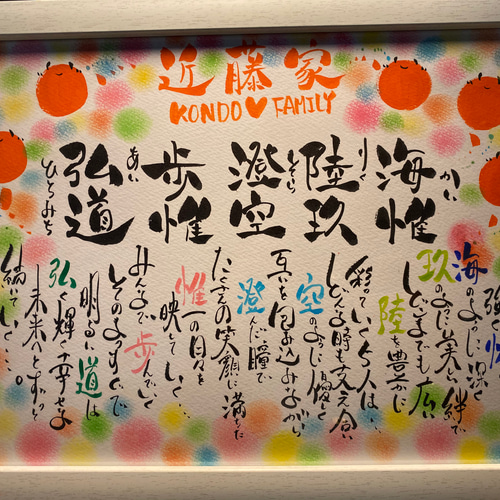 近藤家
KONDO♥FAMILY
海惟
かい
陸玖
りく
澄空
そら
歩惟
あい
弘道
ひろみち
海のように深く
玖のように美しい絆で
どこまでも広い
陸を豊かに
彩っていく5人は…
どんな時も支え合い
空のように優しく
互いを包み込みながら
澄んだ瞳で
たくさんの笑顔に満ちた
惟一の日々を
映していく…
みんなで歩んでいく
そのまっすぐで
明るい道は
弘く輝く幸せな
未来へとずっと
続いていく。